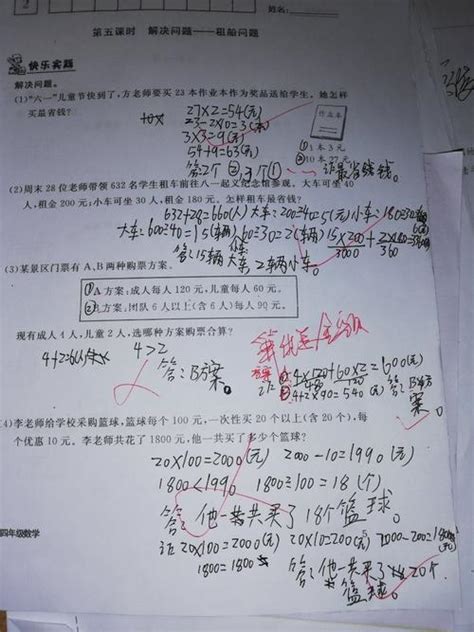 2
姓名:
第五课时 解决问题——租船问题
快乐实践
解决问题。
(1)“六一”儿童节快到了,方老师要买 23 本作业本作为奖品送给学生。她怎样
买最省钱?
27×2=54(元)
23-2×10=3(本)
3×3=9(元)
54+9=63(元)
作业本
①1本 3 元
②10 本 27 元
(2)周末 28 位老师带领 632 名学生租车前往八一起义纪念馆参观。大车可坐 40
人,租金 200 元;小车可坐 30 人,租金 180 元。怎样租车最省钱?
632+28=660(人) 大车:200÷40=5(元) 小车:180÷30
大车:600÷40=15(辆) 60÷30=2(辆) 15×200/3000 + 2×180/360
答:15辆大车,2辆小车。
(3)某景区门票有 A、B 两种购票方案。
①A 方案:成人每人 120 元,儿童每人 60 元。
②B 方案:团队 6 人以上(含 6 人)每人 90 元。
现有成人 4 人,儿童 2 人,选哪种方案购票合算?
4>2
答:B方案。
4×120+60×2=600(元)
4+2×90=540(元) 答:B方
案。
(4)李老师给学校采购篮球,篮球每个 100 元,一次性买 20 个以上(含 20 个),每
个优惠 10 元。李老师共花了 1800 元,他一共买了多少个篮球?
20×100=2000(元) 2000-10=1990(元)
1800<1990 1800÷100=18(个)
答:他一共买了18个篮球。
证 20×100=2000(元) 20×10=200(元) 2000-200=1800(元)
1800=1800
答:他一共买了20个
篮球。
四年级数学